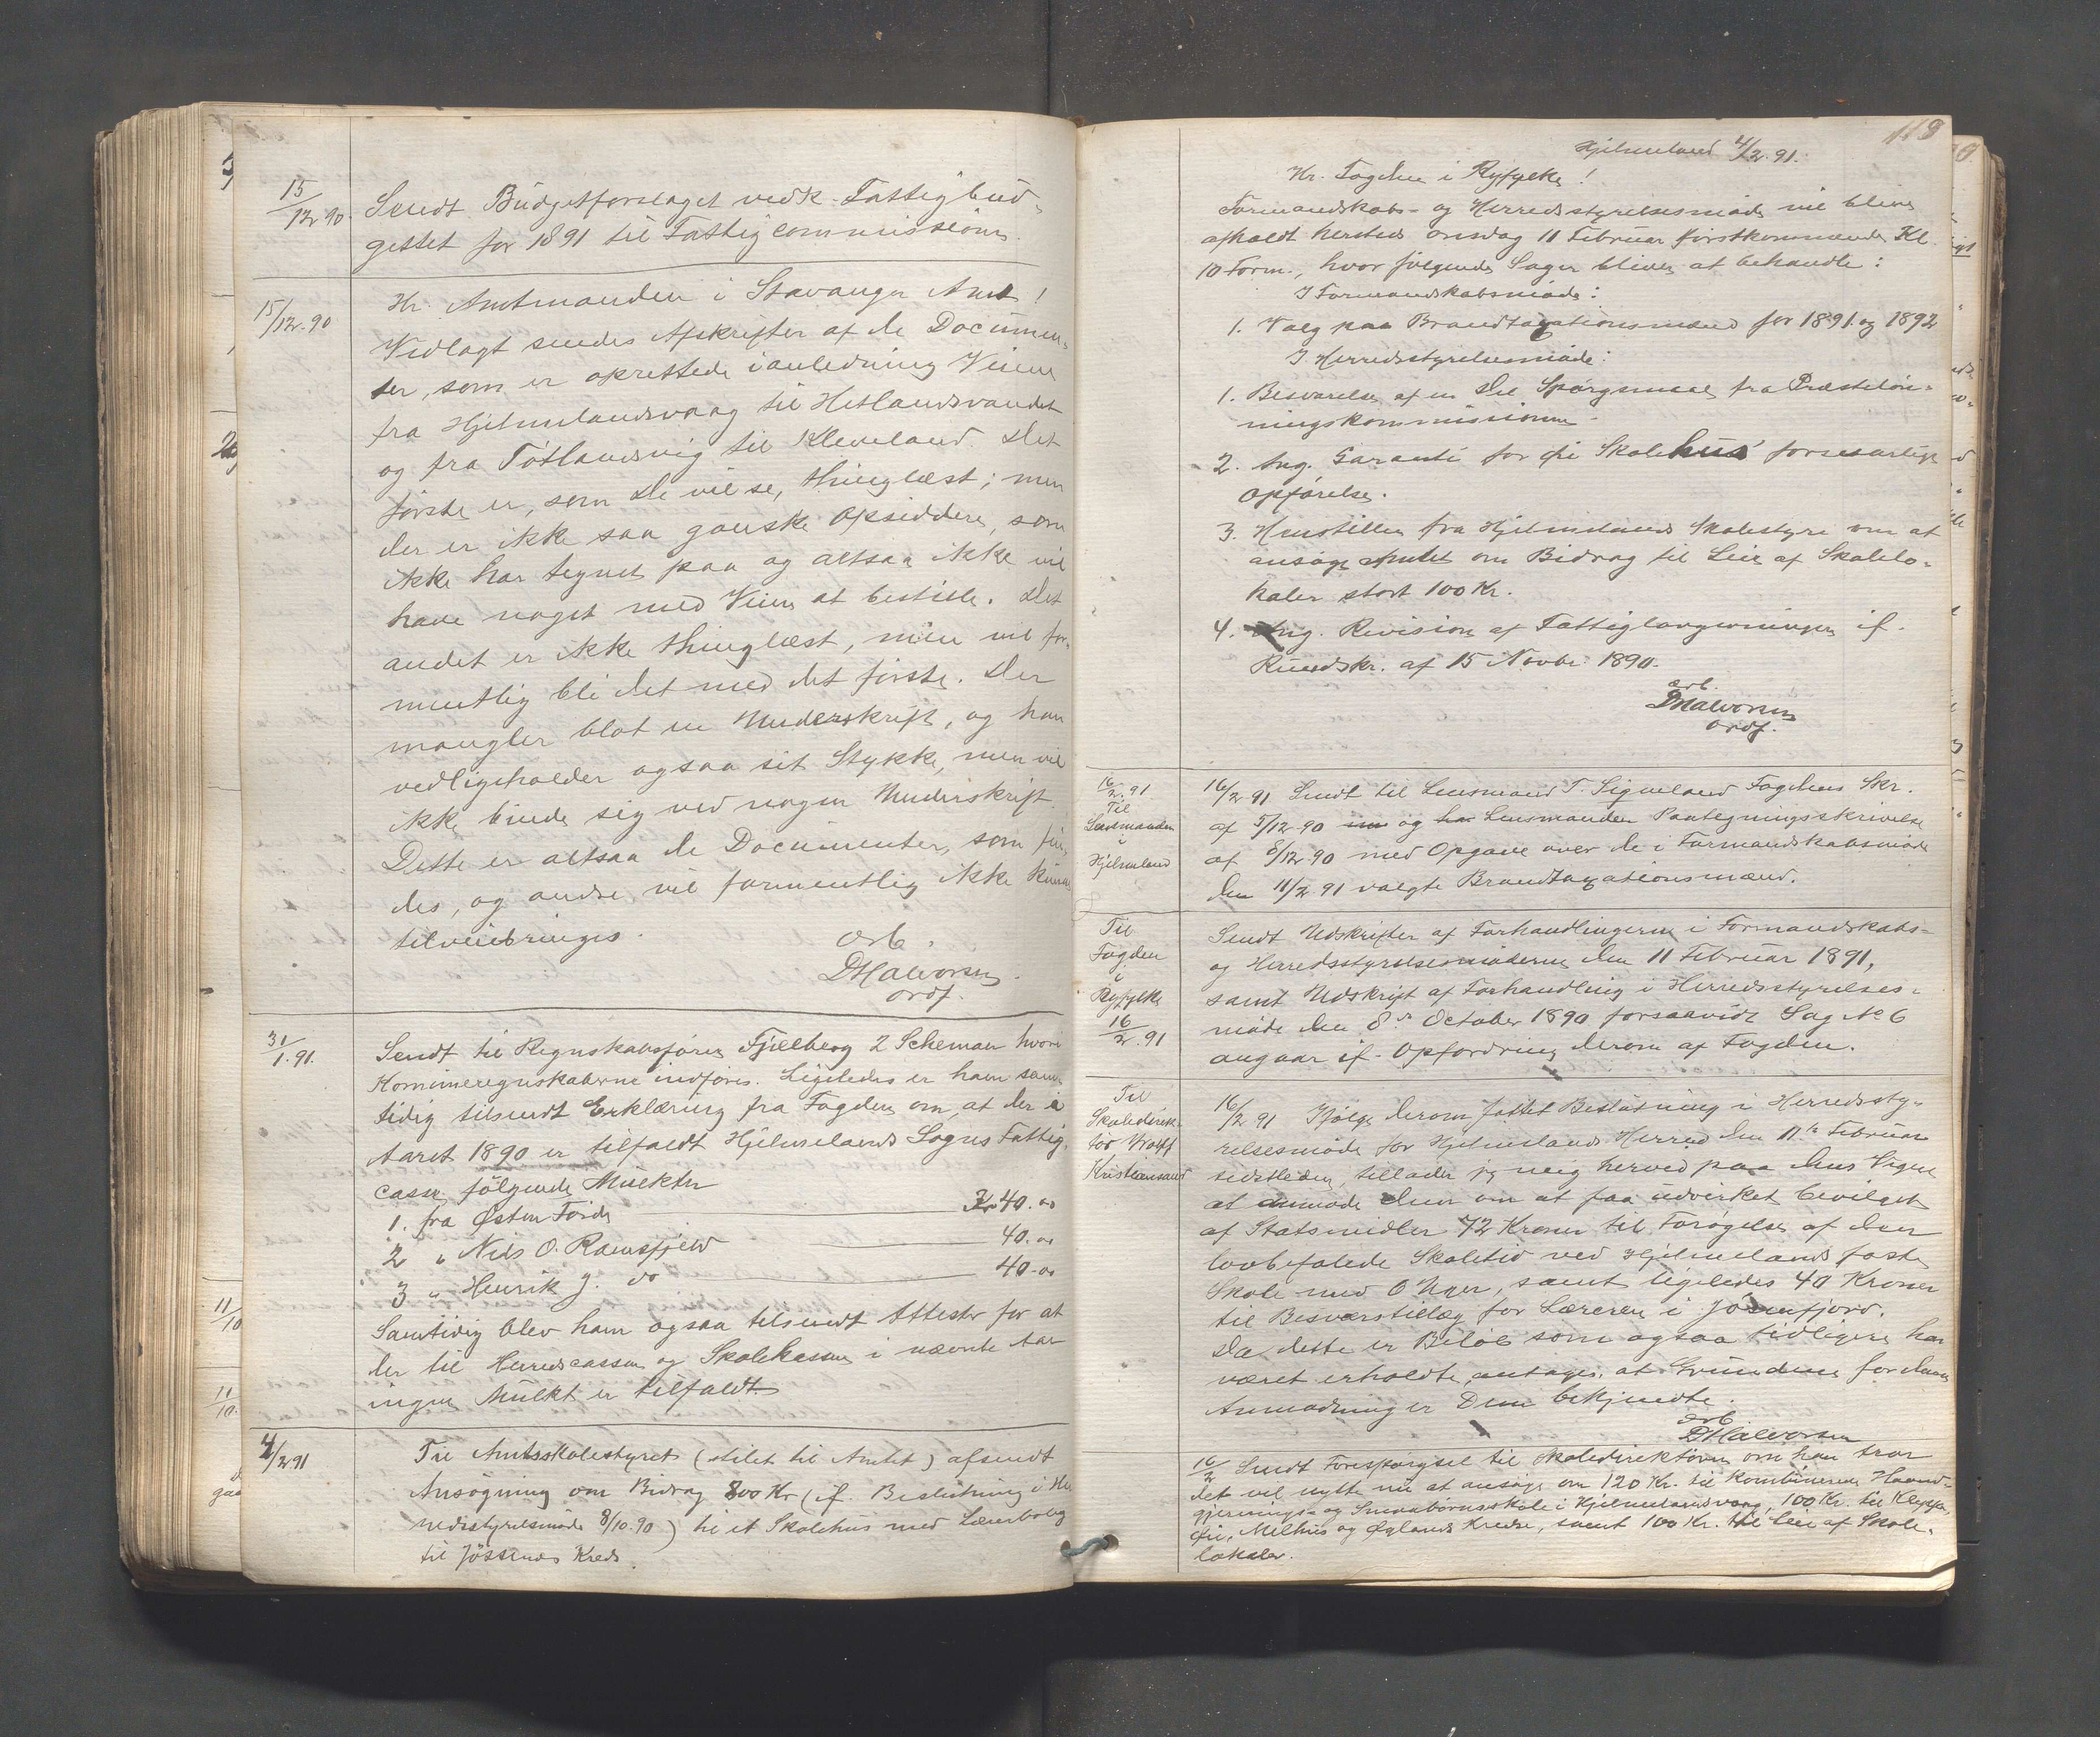 15/12 90.
Sendt Büdgetforslaget vedk. Fattigbüd-
gettet for 1891 til Fattigcommissionen.
15/12.90
Hr. Amtmanden i Stavanger Amt!
Vedlagt sendes Afskrifter af de Documen-
ter, som er oprettede i anledning Veiene
fra Hjelmelandsvaag til Hetlandsvandet
og fra Tøtlandsvig til Kleveland. Det
første er, som De vil se, thinglæst; men
der er ikke saa ganske Opsiddere, som
ikke har tegnet paa og altsaa ikke vil
have noget med Veien at bestille. Det
andet er ikke thinglæst, men vil for-
mentlig bli det med det første. Der
mangler blot en Underskrift, og han
vedligeholder ogsaa sit Stykke, men vil
ikke binde sig ved nogen Underskrift.
Dette er altsaa de Documenter, som fin-
des, og andre vil formentlig ikke kunne
tilveiebringes.
Ærb.
DHalvorsen
Ordf.
31/1.91.
Sendt til Regnskabsfører Fjelberg 2 Schemaer hvori
Kommüneregnskaberne indføres. Ligeledes er ham sam-
tidig tilsendt Erklæring fra Fogden om, at der i
Aaret 1890 er tilfaldt Hjelmelands Sogns Fattig-
casse følgende Mülkter
1. fra Østen Førde Kr 40.00
2 " Nils O. Ramsfjeld 40.00
3 " Henrik J. do 40.00
Samtidig blev ham ogsaa tilsendt Attester for at
der til Herredscassen og Skolekassen i nævnte Aar
ingen Mülkt er tilfaldt.
4/2 91
Til Amtsskolestyret (stilet til Amtet) afsendt
Ansøgning om Bidrag 800 Kr (if. Beslütning i Her-
redsstyrelsesmøde 8/10.90) til et Skolehüs med Lærerbolig
til Jøssenes Kreds.
118
Hjelmeland 4/2.91.
Hr. Fogden i Ryfylke!
Formandskabs- og Herredsstyrelsesmøde vil blive
afholdt hersteds onsdag 11 Februar førstkommende Kl.
10 Form., hvor følgende Sager bliver at behandle:
I Formandskabsmøde:
1. Valg paa Brandtaxationsmænd for 1891 og 1892
I Herredsstyrelsesmøde:
1. Besvarelse af en Del Spørgsmaal fra Præsteløn-
ningskommissionen.
2. Ang. Garanti for Øie Skolehüs' forsvarlige
Opførelse.
3. Henstillen fra Hjelmelands Skolestyre om at
ansøge Amtet om Bidrag til Leie af Skolelo-
kaler stort 100 Kr.
4. Ang. Revision af Fattiglovgivningen if.
Rundskr. af 15 Novbr. 1890.
ærb.
DHalvorsen
Ordf.
16/2.91
Til
Lensmanden
i
Hjelmeland
16/2 91 Sendt til Lensmand T. Signeland Fogdens Skr.
af 5/12 90 og Lensmanden Paategningsskrivelse
af 8/12 90 med Opgave over de i Formandskabsmøde
den 11/2 91 valgte Brandtaxationsmænd.
Til
Fogden
i
Ryfylke
16/2.91
Sendt Udskrifter af Forhandlingerne i Formandskabs-
og Herredsstyrelsesmøderne den 11 Februar 1891,
samt Udskrift af Forhandling i Herredsstyrelses-
møde den 8de October 1890 forsaavidt Sag No 6
angaar if. Opfordring derom af Fogden.
Til
Skoledirek-
tør Wolff
Kristiansand
16/2 91 Ifølge derom fattet Beslütning i Herredssty-
relsesmøde for Hjelmelands Herred den 11te Februar
sidstleden, tillader jeg mig herved paa dens Vegne
at anmode Dem om at faa üdvirket bevilget
af Statsmidler 72 Kroner til Forøgelse af den
lovbefalede Skoletid ved Hjelmelands faste
Skole med 6 Uger, samt ligeledes 40 Kroner
til Besværstillæg for Læreren i Jøsenfjord.
Da dette er Beløb som ogsaa tidligere har
været erholdte, antages, at Gründene for denne
Anmodning er Dem bekjendte.
ærb
DHalvorsen
16/2 Sendt Forespørgsel til Skoledirektøren om han tror
det vil nytte nu at ansøge om 120 Kr. til kombineren Haand-
gjernings- og Smaabørnsskole i Hjelmelandsvaag, 100 Kr. til Kleppe,
Øie, Melhus og Øglands Kredse, samt 100 Kr. til Leie af Skole-
lokaler.